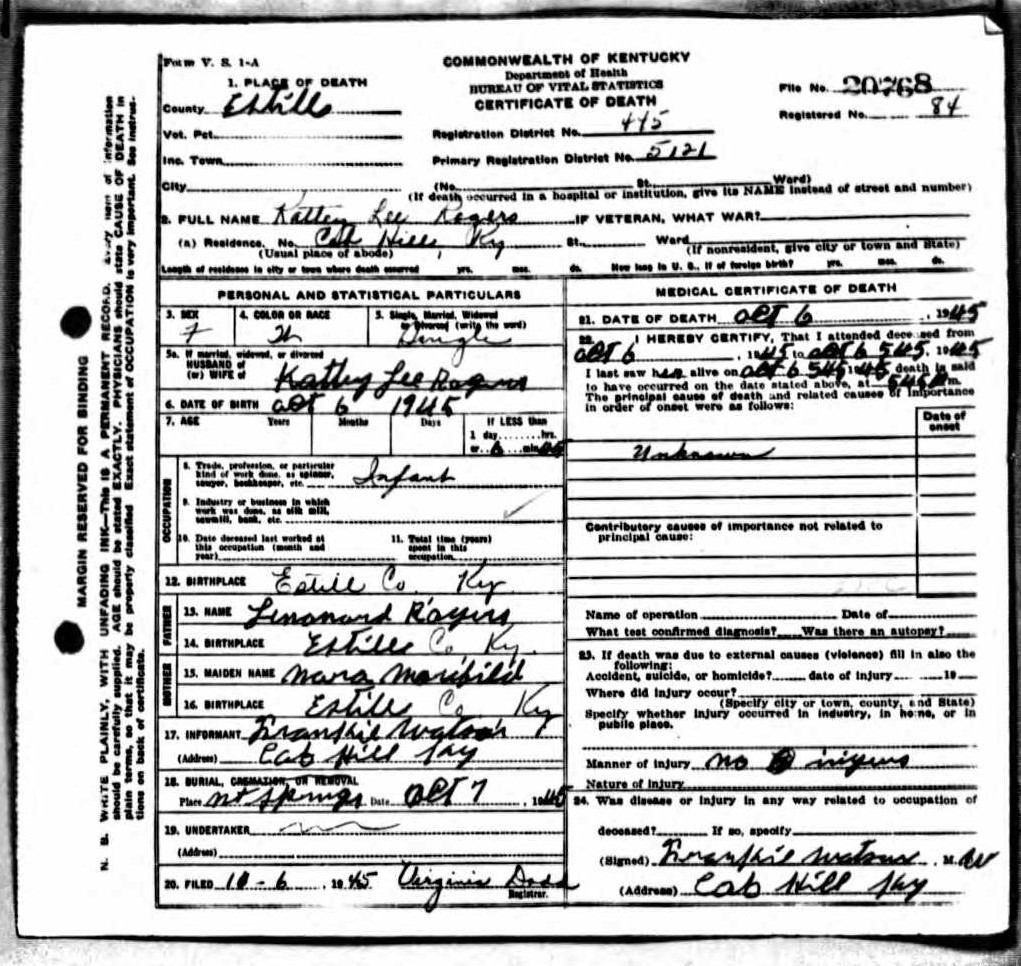 Form V. S. 1-A
COMMONWEALTH OF KENTUCKY
Department of Health
BUREAU OF VITAL STATISTICS
CERTIFICATE OF DEATH
File No. 20768
Registered No. 84
1. PLACE OF DEATH
County Estill
Vot. Pct.
Inc. Town
City
Registration District No. 445
Primary Registration District No. 5121
(No. St. Ward)
(If death occurred in a hospital or institution, give its NAME instead of street and number)
2. FULL NAME Kattey Lee Rogers IF VETERAN, WHAT WAR?
(a) Residence. No. Cob Hill, Ky St. Ward
(Usual place of abode) (If nonresident, give city or town and State)
Length of residence in city or town where death occurred yrs. mos. ds. How long in U. S., if of foreign birth? yrs. mos. ds.
PERSONAL AND STATISTICAL PARTICULARS
3. SEX 4. COLOR OR RACE 5. Single, Married, Widowed
or Divorced (write the word)
F W Single
5a. If married, widowed, or divorced
HUSBAND of
(or) WIFE of Kattey Lee Rogers
6. DATE OF BIRTH Oct 6 1945
7. AGE Years Months Days If LESS than
1 day hrs.
or 6 min
OCCUPATION
8. Trade, profession, or particular
kind of work done, as spinner,
sawyer, bookkeeper, etc. Infant
9. Industry or business in which
work was done, as silk mill,
sawmill, bank, etc.
10. Date deceased last worked at
this occupation (month and
year)
11. Total time (years)
spent in this
occupation
12. BIRTHPLACE Estill Co. Ky.
FATHER
13. NAME Lenonard Rogers
14. BIRTHPLACE Estill Co, Ky.
MOTHER
15. MAIDEN NAME
16. BIRTHPLACE Estill Co Ky
17. INFORMANT Frankie Watson
(Address) Cob Hill Ky
18. BURIAL, CREMATION, OR REMOVAL
Place Mt Springs Date Oct 7, 1945
19. UNDERTAKER
(Address)
20. FILED 10-6, 1945 Virginia Dodd
Registrar.
MEDICAL CERTIFICATE OF DEATH
21. DATE OF DEATH Oct 6, 1945
22. I HEREBY CERTIFY, That I attended deceased from
Oct 6, 1945 to Oct 6 545, 1945
I last saw her alive on Oct 6 545 1945 death is said
to have occurred on the date stated above, at 545 m.
The principal cause of death and related causes of importance
in order of onset were as follows:
Date of
onset
Unknown
Contributory causes of importance not related to
principal cause:
Name of operation Date of
What test confirmed diagnosis? Was there an autopsy?
23. If death was due to external causes (violence) fill in also the
following:
Accident, suicide, or homicide? date of injury 19
Where did injury occur?
(Specify city or town, county, and State)
Specify whether injury occurred in industry, in home, or in
public place.
Manner of injury no
Nature of injury
24. Was disease or injury in any way related to occupation of
deceased? If so, specify
(Signed) Frankie Watson M.
(Address) Cob Hill Ky
MARGIN RESERVED FOR BINDING
N. B. WRITE PLAINLY, WITH UNFADING INK—This IS A PERMANENT RECORD. Every item of information
should be carefully supplied. AGE should be stated EXACTLY. PHYSICIANS should state CAUSE OF DEATH in
plain terms, so that it may be properly classified. Exact statement of OCCUPATION is very important. See instruc-
tions on back of certificate.